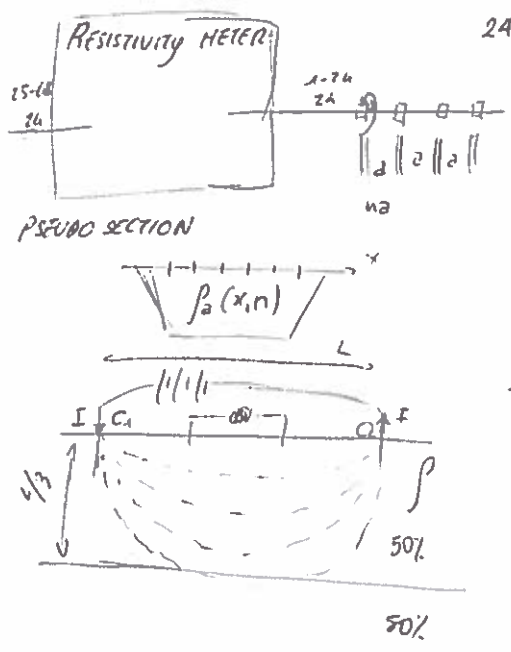 RESISTIVITY METER
24
25-48
24
1-24
24
d a a
na
PSEUDO SECTION
x
ρa (x,n)
L
I C1
I
L/3
ρ
50%
50%